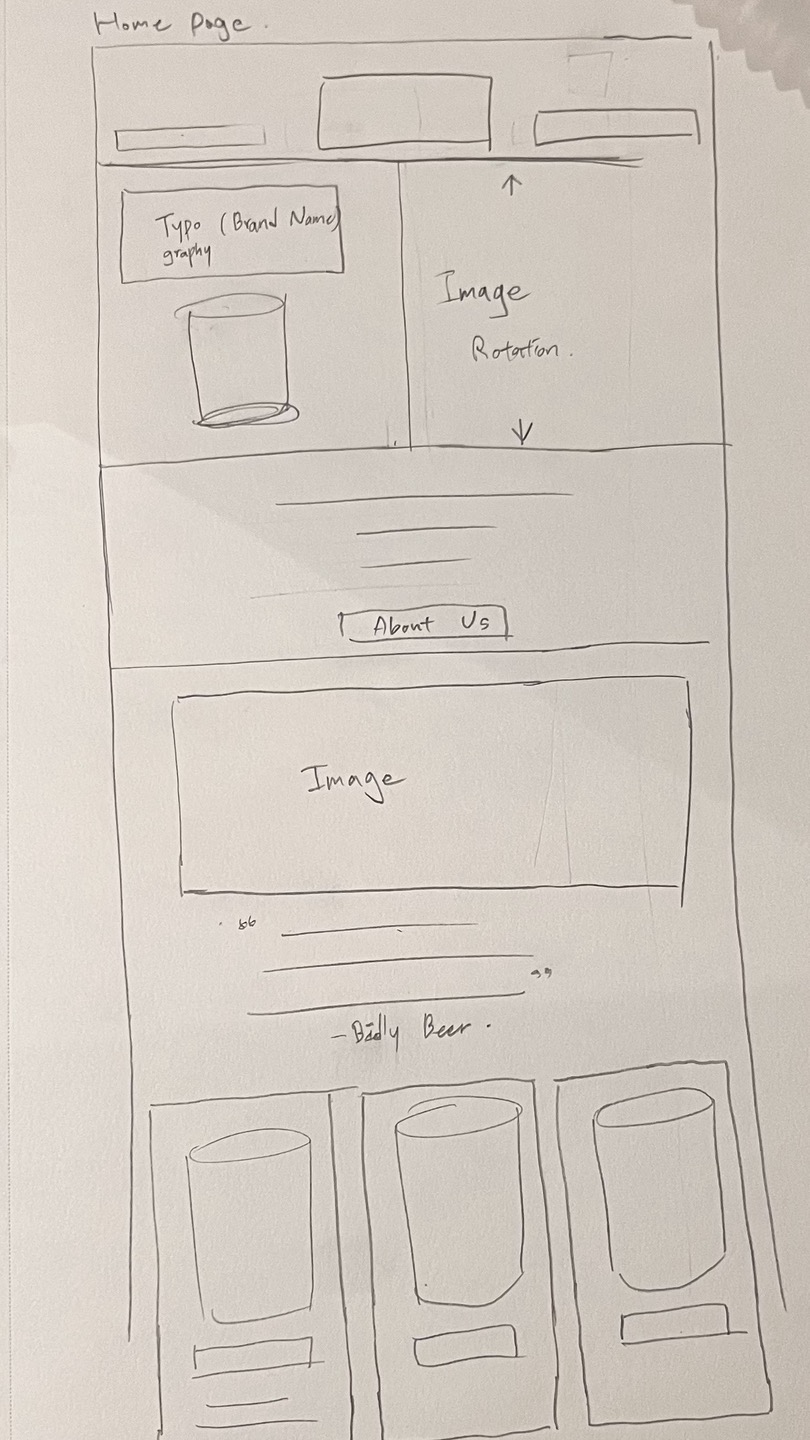 Home Page.
Typo (Brand Name)
graphy
Image
Rotation.
About Us
Image
Beer.